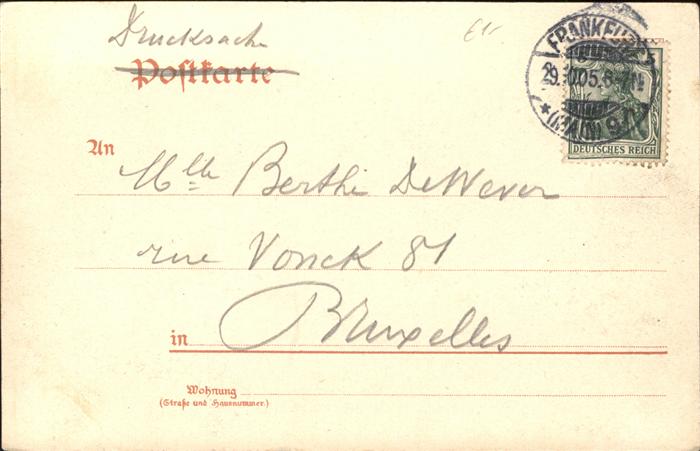 Drucksache
Postkarte
FRANKFURT
29.10.05.6-7N
*(MAIN) 9
DEUTSCHES REICH
An
Mlle Berthe DeWever
rue Vonck 81
in Bruxelles
Wohnung
(Straße und Hausnummer.)